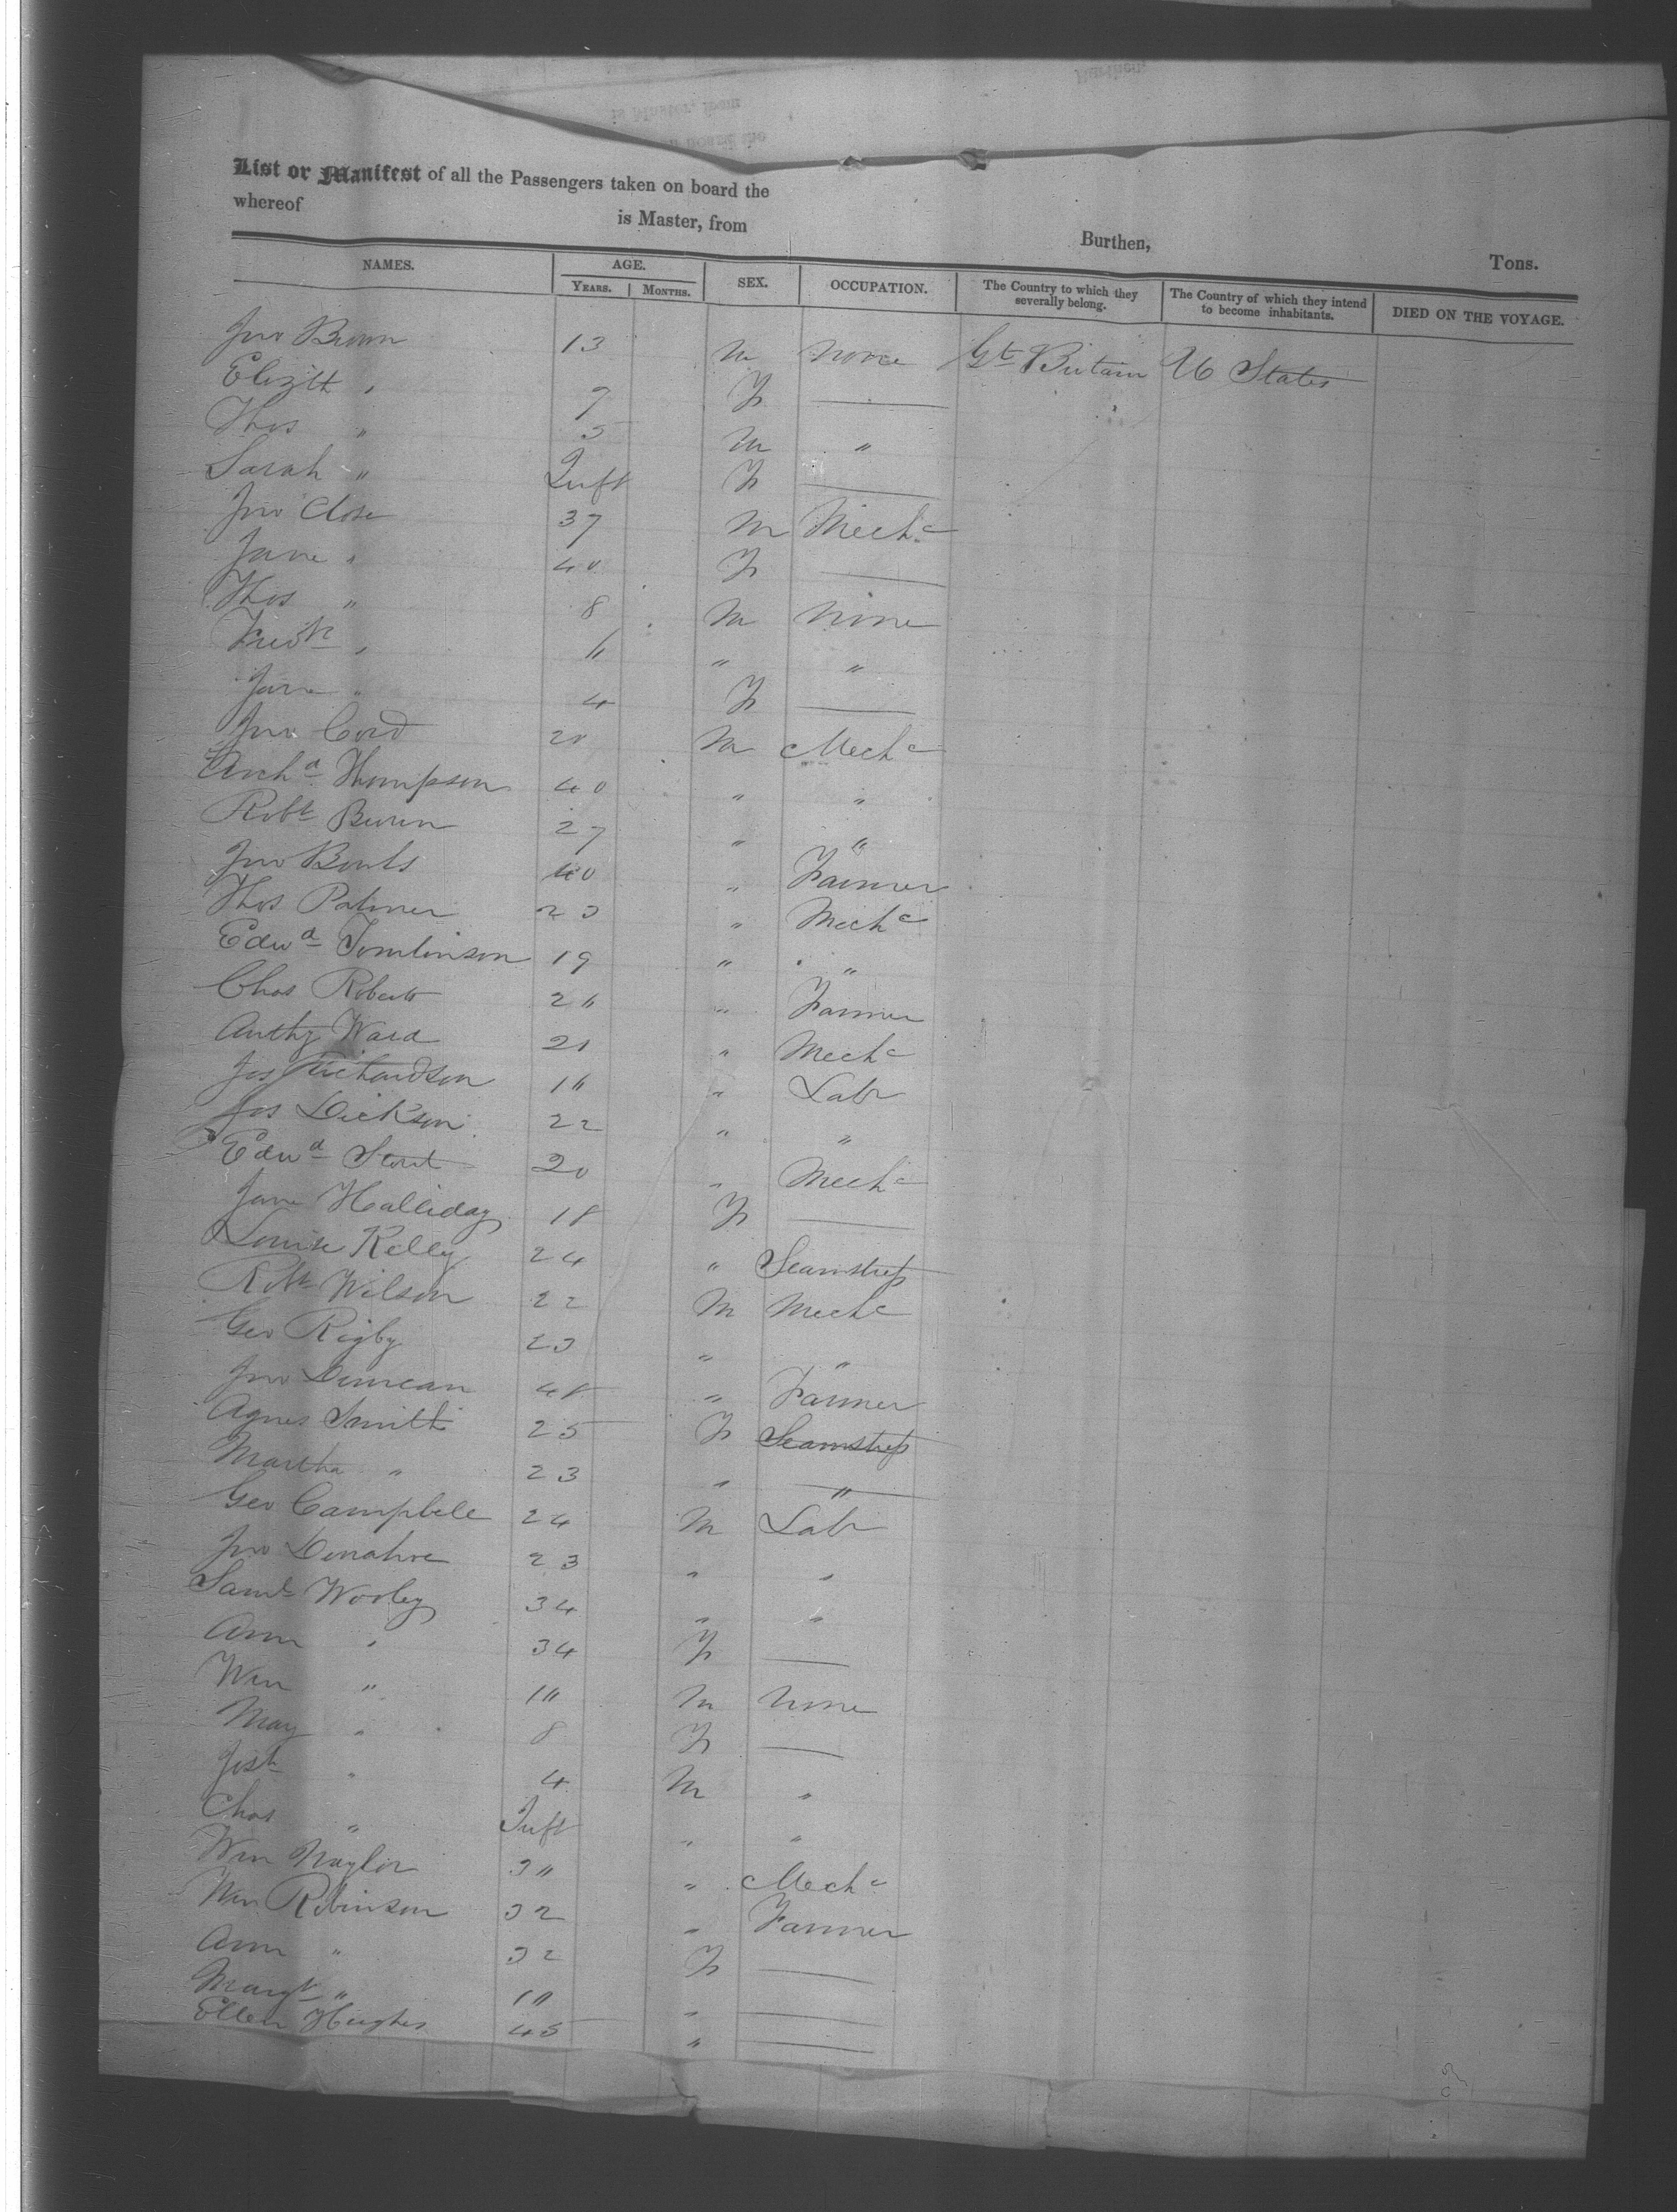 List or Manifest of all the Passengers taken on board the
whereof is Master, from Burthen, Tons.
NAMES. AGE. SEX. OCCUPATION. The Country to which they severally belong. The Country of which they intend to become inhabitants. DIED ON THE VOYAGE.
YEARS. MONTHS.
Jno Brown 13 M None Gt Britain U States
Elizth " 7 F —
Thos " 5 M "
Sarah " Inft F —
Jno Close 37 M Mechc
Jane " 40 F —
Thos " 8 M None
Fredk " 6 " "
Jane " 4 F —
Jno Cord 20 M Mechc
Archd Thompson 40 " "
Robt 27 " "
Jno 40 " Farmer
Thos Palmer 23 " Mechc
Edwd Tomlinson 19 " "
Chas Roberts 26 " Farmer
Anthy Ward 21 " Mechc
Jos Richardson 16 " Labr
Jos Dickson 22 " "
Edwd 20 " Mechc
Jane Halliday 18 F —
Louise Kelly 24 " Seamstress
Robt Wilson 22 M Mechc
Geo Rigby 23 " "
Jno Duncan 48 " Farmer
Agnes Smith 25 F Seamstress
Martha " 23 " "
Geo Campbell 24 M Labr
Jno Donahoe 23 " "
Saml Wooley 34 " "
Ann " 34 F —
Wm " 10 M None
May " 8 F —
Josh " 4 M "
Chas " Inft " "
Wm Naylor 30 " Mechc
Wm Robinson 32 " Farmer
Ann " 32 F —
Margt " 10 " —
Ellen Hughes 45 " —